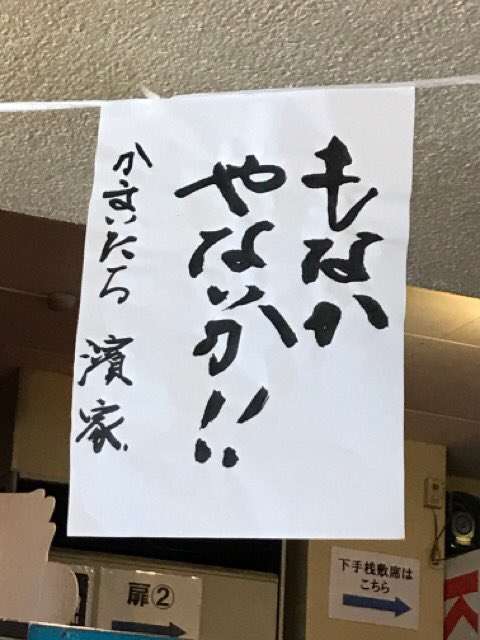 もなか
やないか!!
かまいたち 濱家
扉②
下手桟敷席は
こちら
K